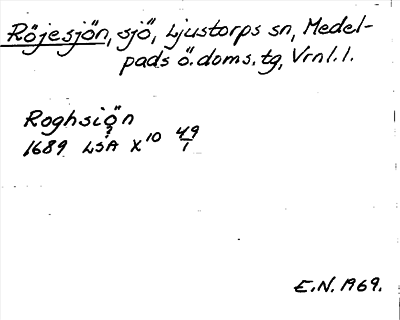 Röjesjön, sjö, Ljustorps sn, Medel-
pads ö. doms. tg, Vrnl. l.
Roghsiön
1689 LSA X10 49/1
E.N. 1969.